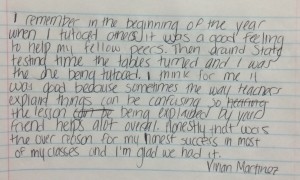 I remember in the beginning of the year
when I tutored others it was a good feeling
to help my fellow peers. Then around State
testing time the tables turned and I was
the one being tutored. I think for me it
was good because sometimes the way teachers
explain things can be confusing so hearing
the lesson being explained by your
friend helps alot overall. Honestly that was
the over reason for my honest success in most
of my classes and I'm glad we had it.
Vivian Martinez